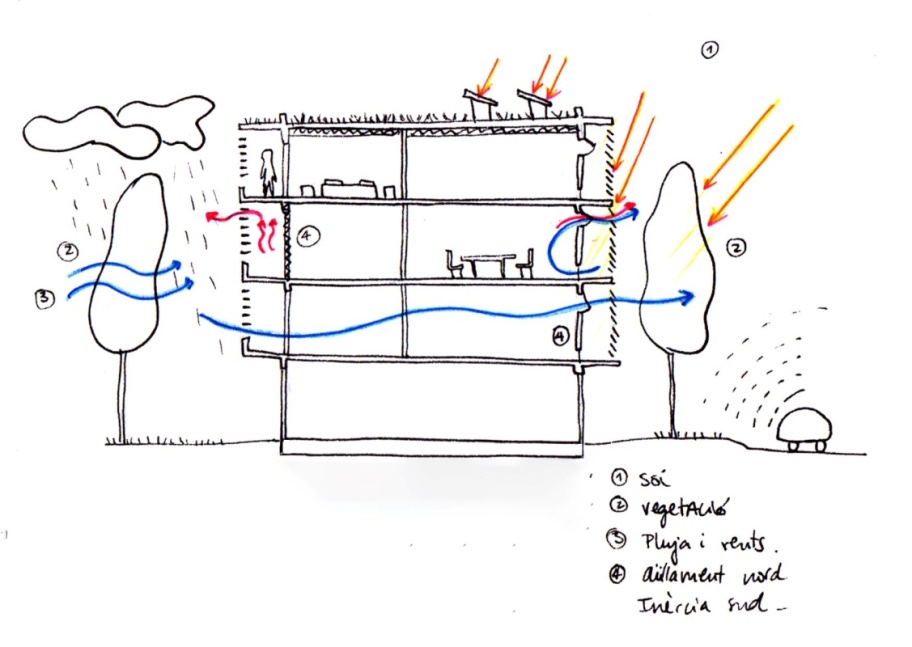 ①
②
③
④
②
④
① Sol
② vegetació
③ Pluja i vents.
④ aïllament nord
Inèrcia sud -